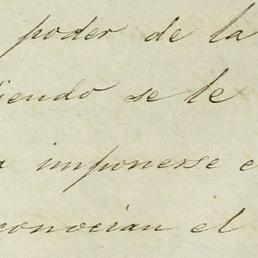 poder de la
iendo se le
imponerse e
conocian el